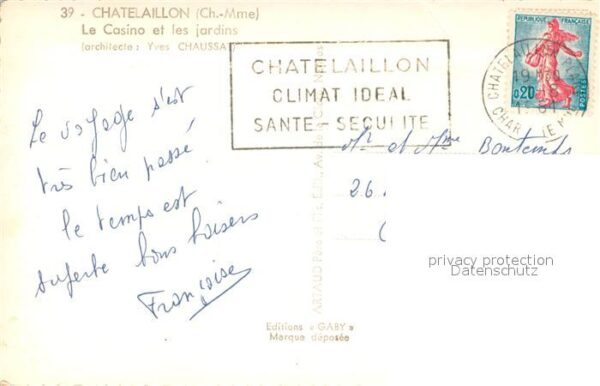 39 - CHATELAILLON (Ch.-Mme)
Le Casino et les jardins
(architecte : Yves CHAUSSAT)
CHATELAILLON
CLIMAT IDEAL
SANTE - SECUIITE
REPUBLIQUE FRANÇAISE
0,20
POSTES
Le voyage s'est
très bien passé
le temps est
superbe bons baisers
Françoise
Mr et Mme Bontemps
26.
privacy protection
Datenschutz
ARTAUD Père et Fils, Edit.
Editions « GABY »
Marque déposée